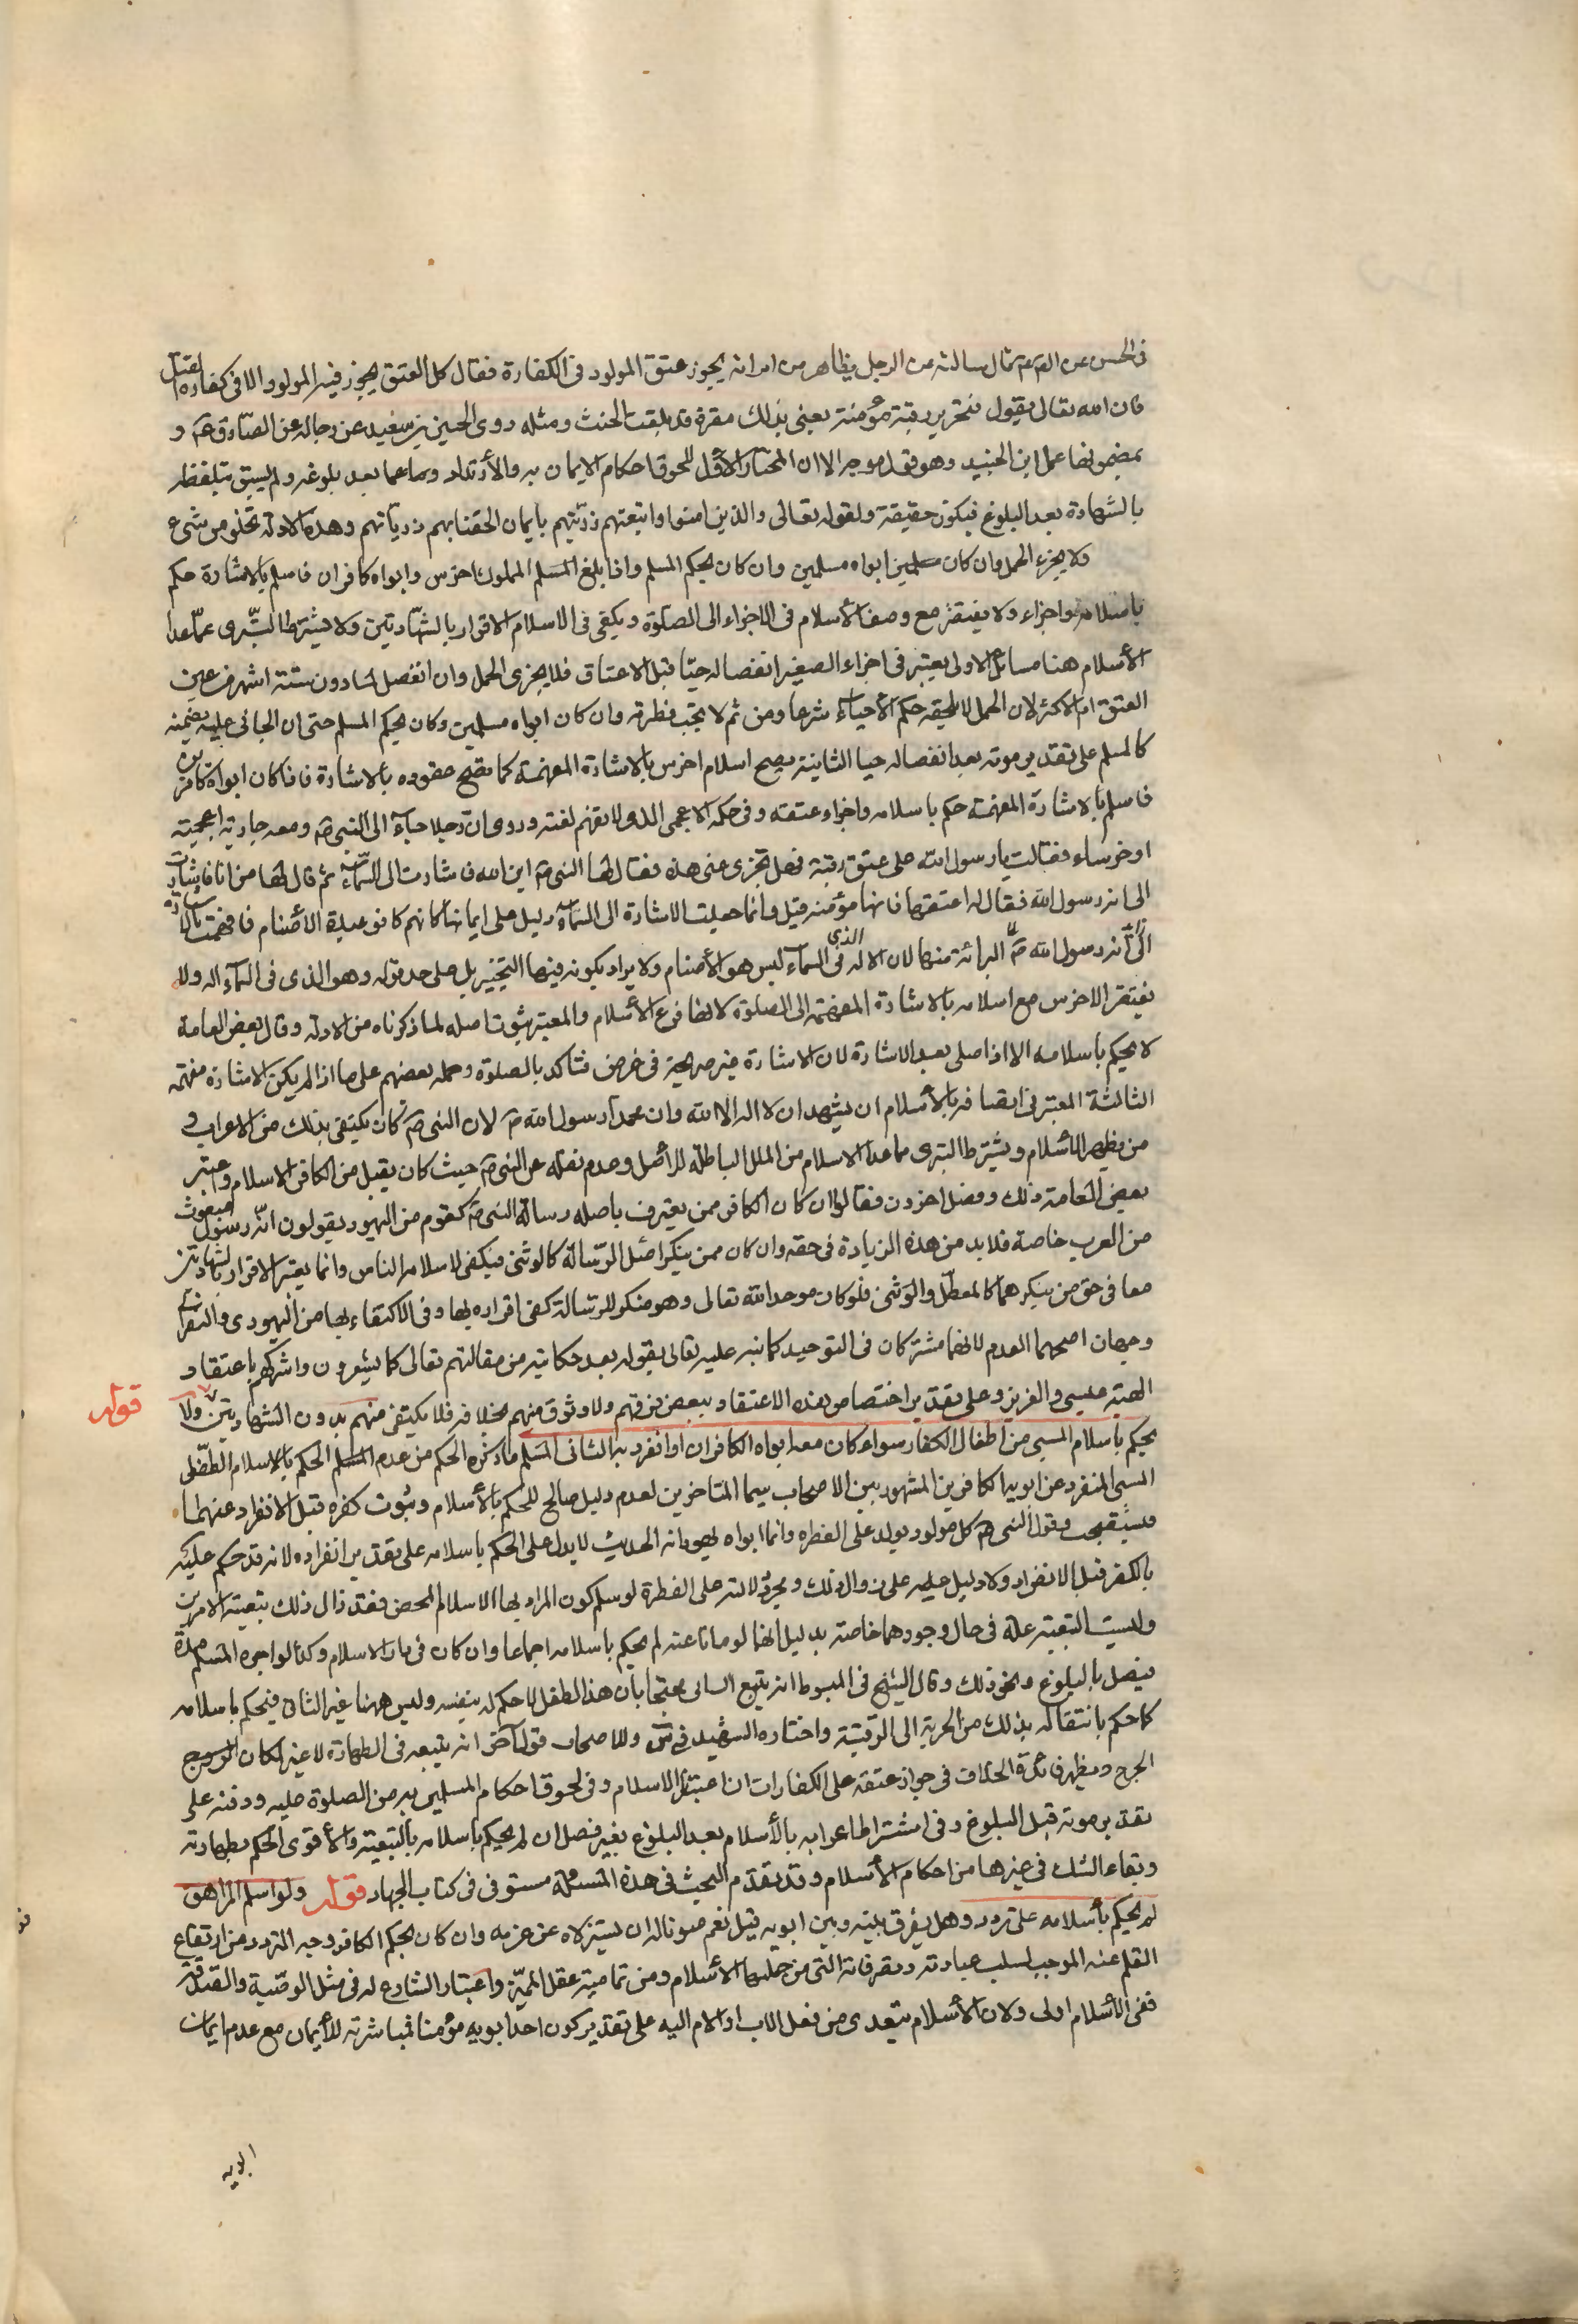 في الحسن عن الصم ثم قال سالته عن الرجل يظاهر من امراته يجوز عتق المولود في الكفارة فقال كل العتق يجوز فيه المولود الا في كفارة القتل
فان الله تعالى يقول فتحرير رقبة مؤمنة يعني بذلك مقرة قد بلغت الحنث ومثله روى الحسين بن سعيد عن رجاله عن الصادق عم و
بمضمونها عمل ابن الجنيد وهو قول موجه الا ان المختار الاول للحوق احكام الايمان به والأرتداد بعد بلوغه ولم يسبق تلفظه
بالشهادة بعد البلوغ فيكون حقيقة ولقوله تعالى والذين امنوا واتبعتهم ذريتهم بايمان الحقنا بهم ذرياتهم وهذه الادلة تخلو من شيء
ولا يجزء الحمل وان كان ابواه مسلمين وان كان بحكم المسلم واذا بلغ المملوك اخرس وابواه كافران فاسلم بالاشارة حكم
باسلامه واجزاء ولا يفتقر مع وصف الأسلام في الاجزاء الى الصلوة ويكفي في الاسلام الاقرار بالشهادتين ولا يشترط التبرى عما عدا
الأسلام هنا مسائل الاولى يعتبر في اجزاء الصغير انفصاله حيا قبل الاعتاق فلا يجزى الحمل وان انفصل لما دون ستة اشهر من حين
العتق ام الاكثر لان الحمل لا يلحقه حكم الأحياء شرعا ومن ثم لا يجب فطرته وان كان ابواه مسلمين وكان بحكم المسلم حتى ان الجاني عليه يضمنه
كالمسلم على تقدير موته بعد انفصاله حيا الثانية يصح اسلام اخرس بالاشارة المفهمة كما تصح عقوده بالاشارة فاذا كان ابواه كافرين
فاسلم بالاشارة المفهمة حكم باسلامه واجزاء عتقه وفي حكمه الاعجمى الذى لا نفهم لغته وروى ان رجلا جاء الى النبي ص ومعه جارية اعجمية
او خرساء فقال يا رسول الله على عتق رقبة فهل تجزى عنى هذه فقال لها النبي ص اين الله فاشارت الى السماء ثم قال لها من انا فاشارت
الى انه رسول الله فقال له اعتقها فانها مؤمنة قيل وانما جعلت الاشارة الى السماء دليل على ايمانها كانهم كانوا عبدة الأصنام فافهمت بالاشارة
البرائة منها لان الاله الذى في السماء ليس هو الأصنام ولا يراد بكونه فيها التحيز بل على حد قوله وهو الذى في السماء اله ولا
يفتقر الاخرس مع اسلامه بالاشارة المفهمة الى الصلوة لانها فرع الأسلام والمعتبر ثبوت اصله لما ذكرناه من الادلة وقال بعض العامة
لا يحكم باسلامه الا اذا صلى بعد الاشارة لان الاشارة غير صريحة في غرض فتاكد بالصلوة وحمله بعضهم على ما اذا لم يكن الاشارة مفهمه
الثالثة المعتبر في اتصافه بالأسلام ان يشهد ان لا اله الا الله وان محمدا رسول الله ص لان النبي ص كان يكتفى بذلك من الاعراب و
من يظهر الأسلام ويشترط التبرى مما عدا الاسلام من الملل الباطلة للأصل وعدم نقله عن النبي ص حيث كان يقبل من الكافر الاسلام واعتبر
بعض العامة ذلك وفصل اخرون فقالوا ان كان الكافر ممن يعترف باصله رسالة النبي ص كقوم من اليهود يقولون انه رسول مبعوث
من العرب خاصة فلا بد من هذه الزيادة في حقه وان كان ممن ينكر اصل الرسالة كالوثنى فيكفى لاسلامه وانما يعتبر الاقرار بالشهادتين
معا في حق من ينكرهما كالمعطل والوثنى فلو كان موحدا لله تعالى وهو منكر للرسالة كفى اقراره بها وفى الاكتفاء بها من اليهودى والنصرانى
وجهان اصحهما العدم لانهما مشتركان في التوحيد كما نبه عليه تعالى بقوله بعد حكايته من مقالتهم تعالى عما يشركون واشركهم باعتقاد
الهية عيسى والعزير وعلى تقدير اختصاص هذه الاعتقاد ببعض فرقهم ولا وثوق منهم بخلافه فلا يكتفى منهم بدون الشهادتين ولا
قوله
يحكم باسلام المسبى من اطفال الكفار سواء كان معه ابواه الكافران او انفرد به السابى المسلم ما ذكره الحكم من عدم الحكم بالاسلام الطفل
المسبى المنفرد عن ابويه الكافرين المشهور بين الاصحاب سيما المتاخرين لعدم دليل صالح للحكم بالأسلام وثبوت كفره قبل الانفراد عنهما
فيستصحب وقول النبي ص كل مولود يولد على الفطرة وانما ابواه يهودانه الحديث لا يدل على الحكم باسلامه على تقدير انفراده لانه قد حكم عليه
بالكفر قبل الانفراد ولا دليل عليه على زوال ذلك ومجرد دلالته على الفطرة لو سلم كون المراد بها الاسلام المحض فقد زال ذلك بتبعية الابوين
وليست التبعية علة في حال وجودهما خاصة بدليل انهما لو ماتا عنه لم يحكم باسلامه اجماعا وان كان في دار الاسلام وكذا لو اجره المسلم مدة
فيصل بالبلوغ ونحو ذلك وقال الشيخ في المبسوط انه يتبع السابى محتجا بأن هذا الطفل لا حكم له بنفسه وليس ههنا غير السابى فيحكم باسلامه
كما حكم بانتقاله بذلك من الحرية الى الرقية واختاره الشهيد في س وللاصحاب قول اخر انه يتبعه في الطهارة لا غير لمكان
الحرج ويظهر فائدة الخلاف في جواز عتقه على الكفارات ان اعتبرنا الاسلام وفى لحوق احكام المسلمين به من الصلوة عليه ودفنه على
تقدير موته قبل البلوغ وفى اشتراط اعرابه بالأسلام بعد البلوغ بغير فصل ان لم يحكم باسلامه بالتبعية والأقوى الحكم بطهارته
وبقاء الشك في غيرها من احكام الأسلام وقد تقدم البحث في هذه المسئلة مستوفى في كتاب الجهاد قوله ولو اسلم المراهق
لم يحكم بأسلامه على تردد وهل يفرق بينه وبين ابويه قيل نعم صونا له ان يستزلاه عن عزمه وان كان بحكم الكافر وجه التردد من ارتفاع
القلم عنه الموجب لسلب عبادته وتصرفاته التى من جملتها الأسلام ومن تمامية عقل المميز واعتبار الشارع له في مثل الوصية والصدقة
ففى الأسلام اولى ولان الأسلام يتعدى من فعل الاب او الام اليه على تقدير كون احد ابويه مؤمنا فمباشرته للأيمان مع عدم ايمان
ابويه